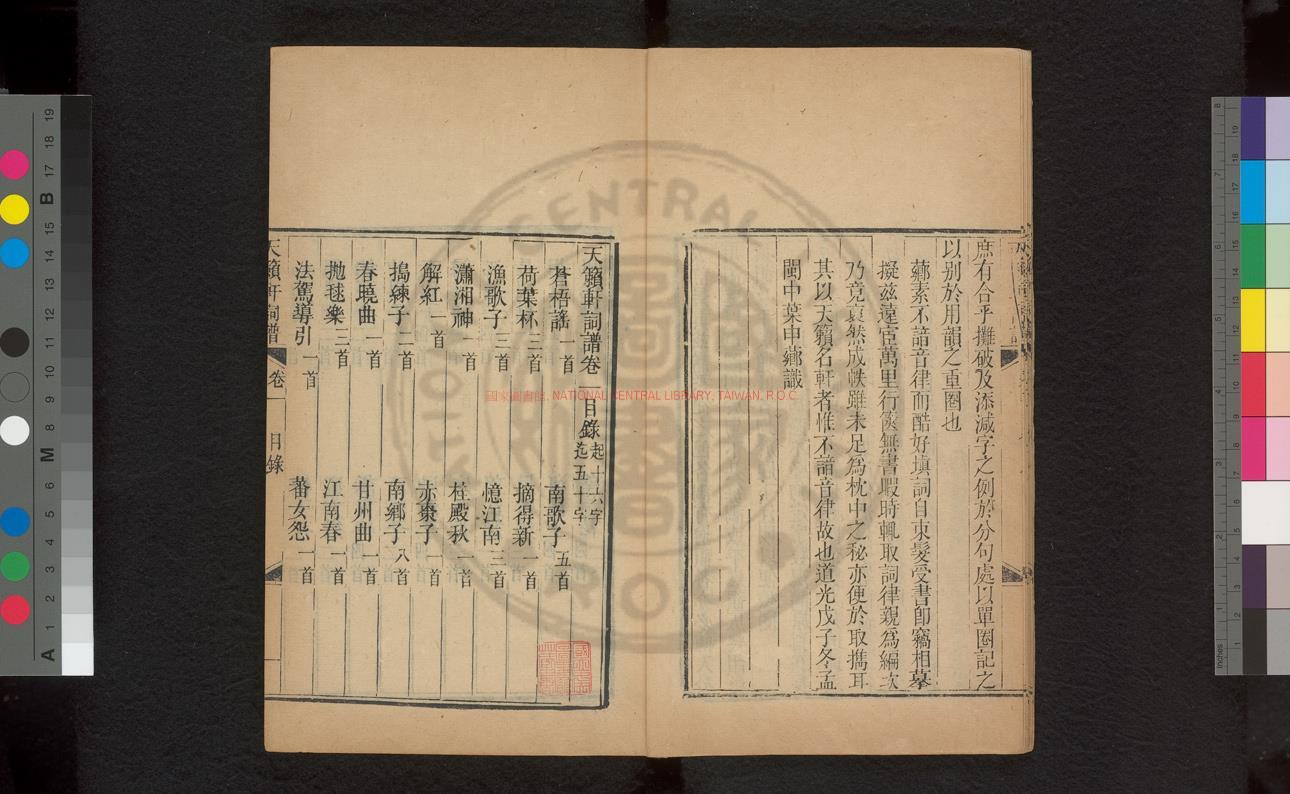 庶有合乎攤破及添減字之例於分句處以單圈記之
以别於用韻之重圈也
薌素不諳音律而酷好填詞自束髮受書卽竊相摹
擬兹遠宦萬里行篋無書暇時輒取詞律親爲編次
乃竟裒然成帙雖未足爲枕中之秘亦便於取擕耳
其以天籟名軒者惟不諳音律故也道光戊子冬孟
閩中葉申薌識
天籟軒詞譜卷一目錄 起十六字迄五十字
蒼梧謠 一首 南歌子 五首
荷葉杯 三首 摘得新 一首
漁歌子 三首 憶江南 三首
瀟湘神 一首 桂殿秋 一首
解紅 一首 赤棗子 一首
搗練子 二首 南鄉子 八首
春曉曲 一首 甘州曲 一首
拋毬樂 三首 江南春 一首
法駕導引 一首 蕃女怨 一首
天籟軒詞譜 卷一 目錄 一
國家圖書館, NATIONAL CENTRAL LIBRARY, TAIWAN, R.O.C.